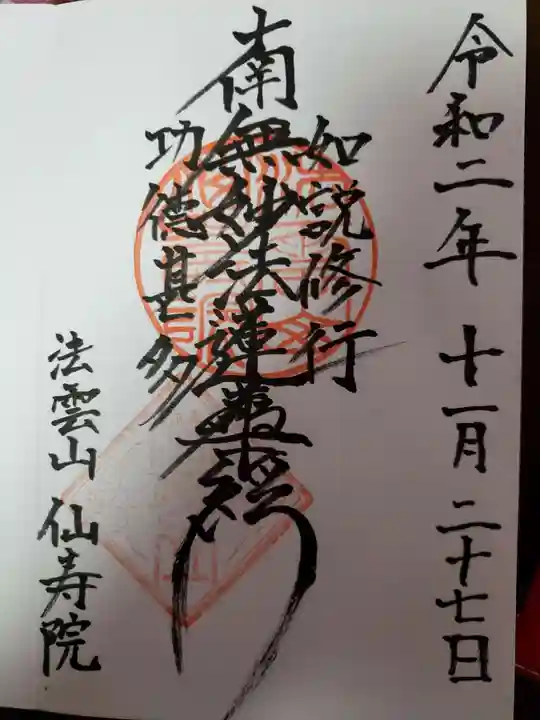 令和二年 十一月 二十七日
如説修行
南無妙法蓮華経
功徳甚多
法雲山 仙寿院